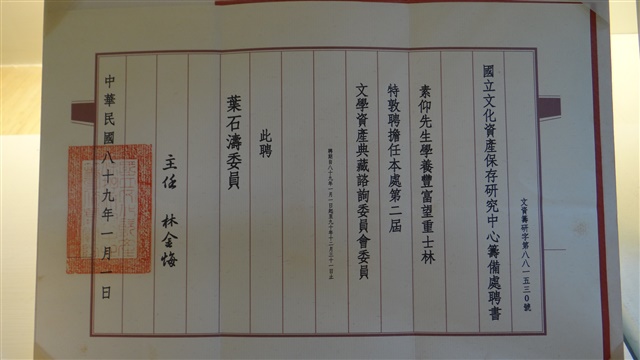 文資籌研字第八八一五三０號
國立文化資產保存研究中心籌備處聘書
素仰先生學養豐富望重士林
特敦聘擔任本處第二屆
文學資產典藏諮詢委員會委員
聘期自八十九年一月一日起至九十年十二月三十一日止
此聘
葉石濤委員
主任 林金悔
中華民國八十九年一月一日